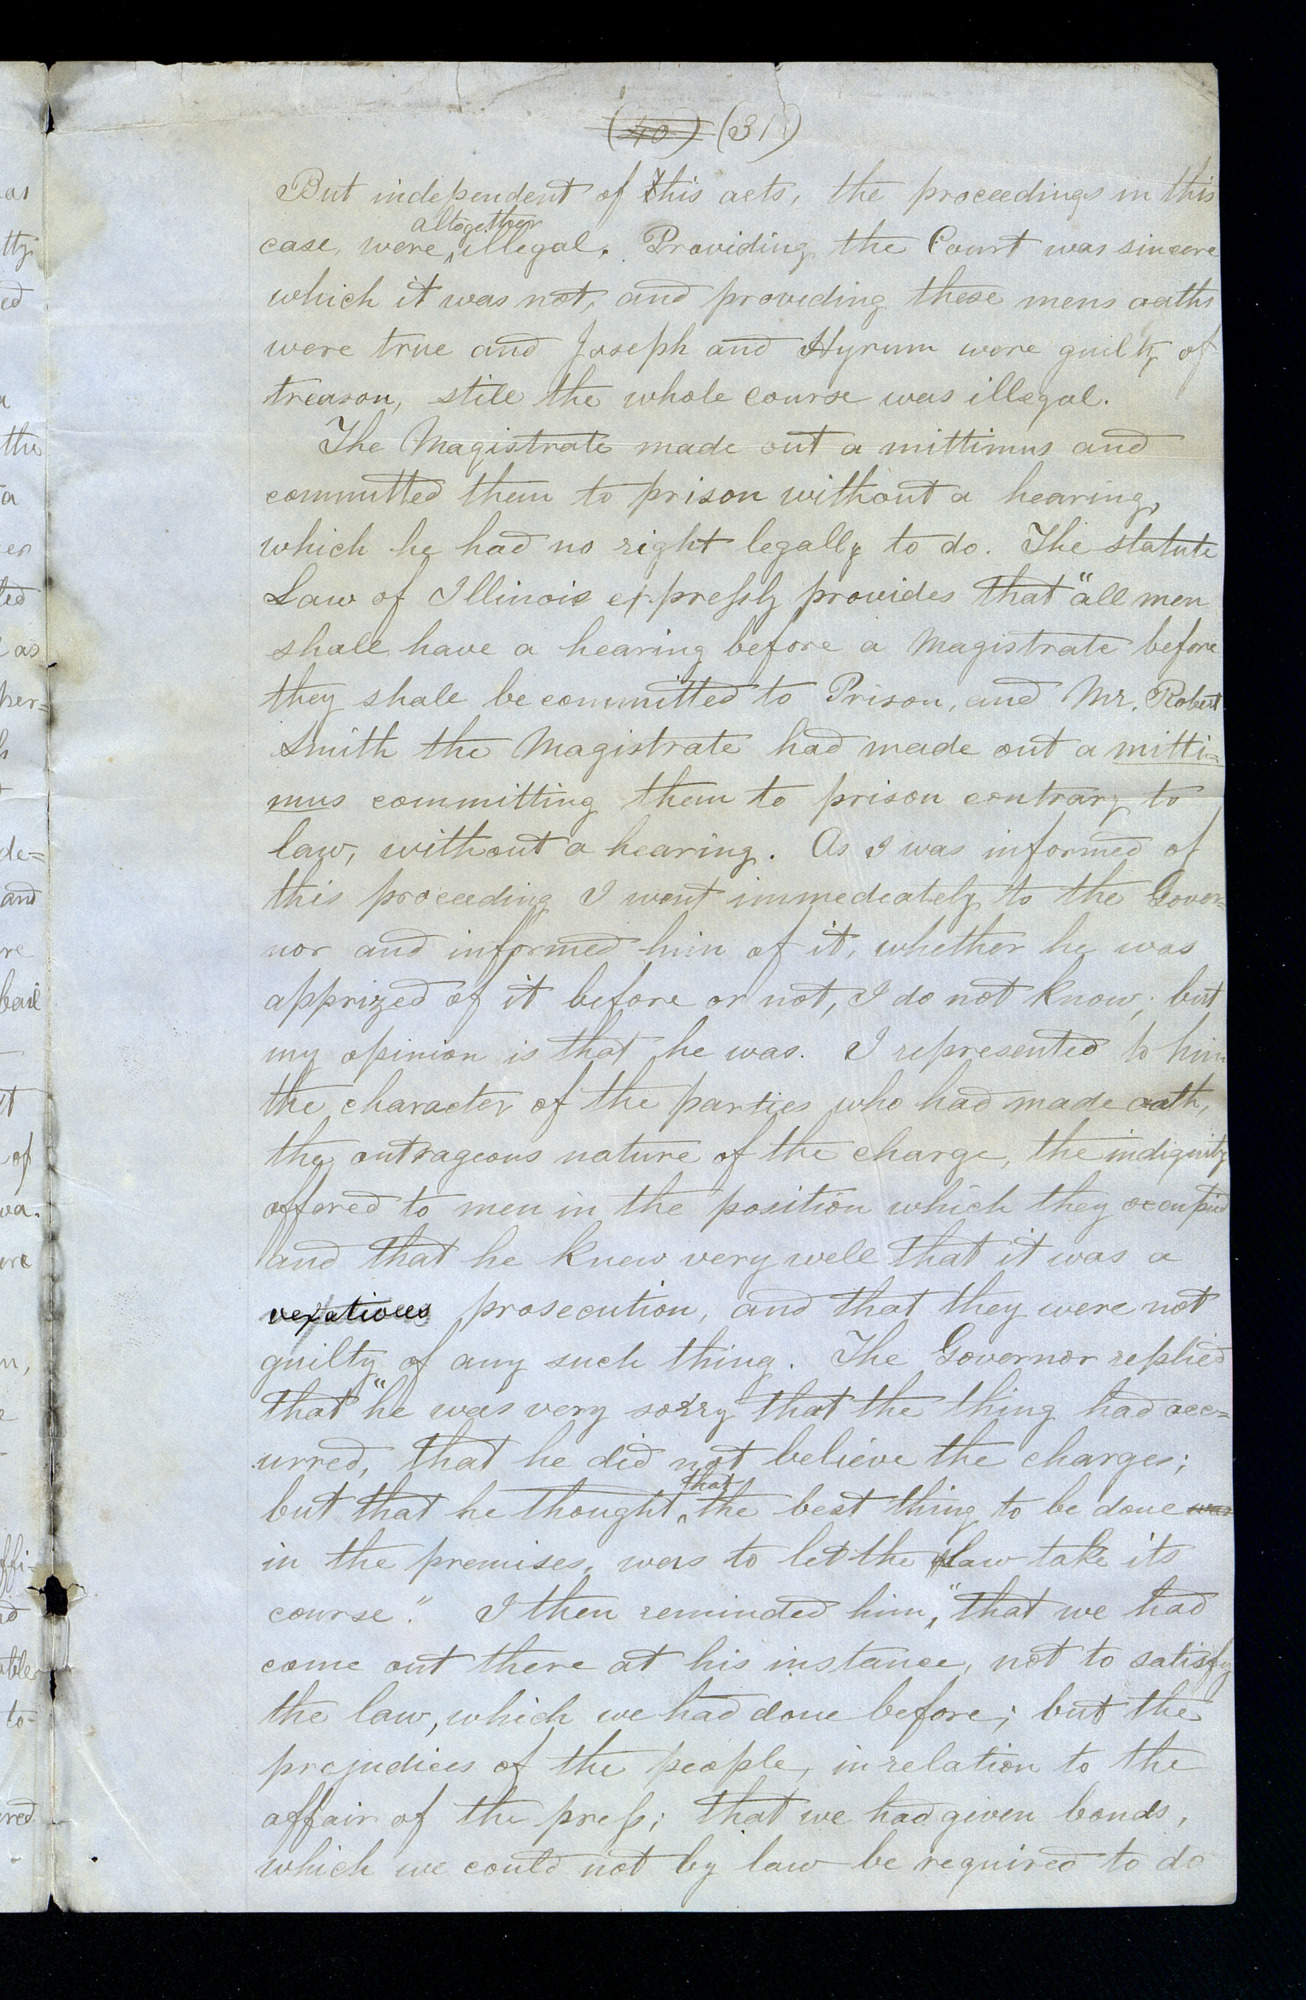 (40) (31)
But independent of this acts, the proceedings in this
altogether
case, were, illegal. Providing the Court was sincere
which it was not, and providing these mens oaths
were true and Joseph and Hyrum were guilty of
treason, still the whole course was illegal.
The Magistrate made out a mittimus and
committed them to prison without a hearing,
which he had no right legally to do. The statute
Law of Illinois expressly provides that "all men
shall have a hearing before a Magistrate before
they shall be committed to Prison, and Mr. Robert
Smith the Magistrate had made out a mitti-
mus committing them to prison contrary to
law, without a hearing. As I was informed of
this proceeding I went immediately to the Gover=
nor and informed him of it, whether he was
apprized of it before or not, I do not know; but
my opinion is that he was. I represented to him
the character of the parties who had made oath,
the outrageous nature of the charge, the indignity
offered to men in the position which they occupied
and that he knew very well that it was a
vexatious prosecution, and that they were not
guilty of any such thing. The Governor replied
that "he was very sorry that the thing had occ=
urred, that he did not believe the charges;
that
but that he thought, the best thing to be done was
in the premises, was to let the law take its
course." I then reminded him, "that we had
come out there at his instance, not to satisfy
the law, which we had done before; but the
prejudices of the people, in relation to the
affair of the press; that we had given bonds,
which we could not by law be required to do
as
ed
the
a
ted
as
per=
h
de=
and
re
bail
of
ffi-
able
to-
red